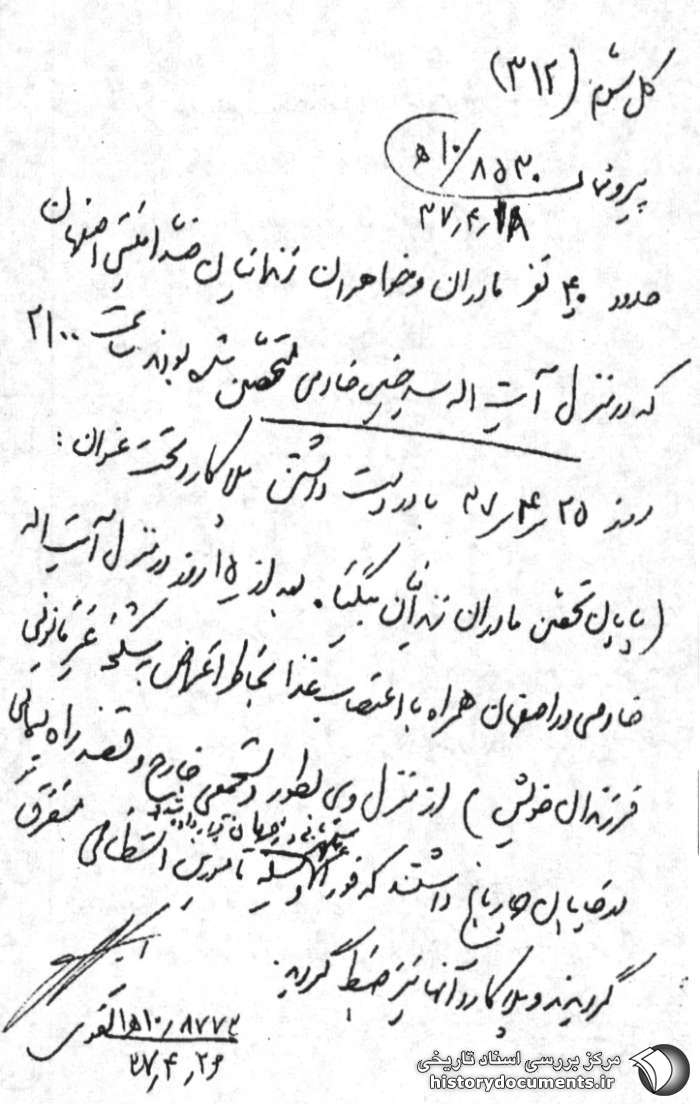 کل سوم (۳۱۲)
پیرونمای ۱۰/۸۵۳۰ ه
۳۷٫۴٫۱۸
حدود ۴۰ نفر مادران و خواهران زندانیان ضد امنیتی اصفهان
که در منزل آیت اله سید حسین خادمی متحصن شده بودند ساعت ۲۱۰۰
روز ۲۵ر۴ر۳۷ با در دست داشتن پلاکارد تحت عنوان :
(پایان تحصن مادران زندانیان بعد از ۱۵ روز در منزل آیت اله
خادمی در اصفهان همراه با اعتصاب غذا بخاطر اعتراض به شکنجه غیر قانونی
فرزندان خویش) از منزل وی بطور دستجمعی خارج و قصد راه پیمائی
در خیابان چهارباغ داشتند که فورا وسیله مامورین انتظامی متفرق
گردیدند و پلاکارد آنها نیز ضبط گردید.
۱۰٫۸۷۷۳ ه‍ ۱
۳۷٫۴٫۲۶
مرکز بررسی اسناد تاریخی
historydocuments.ir